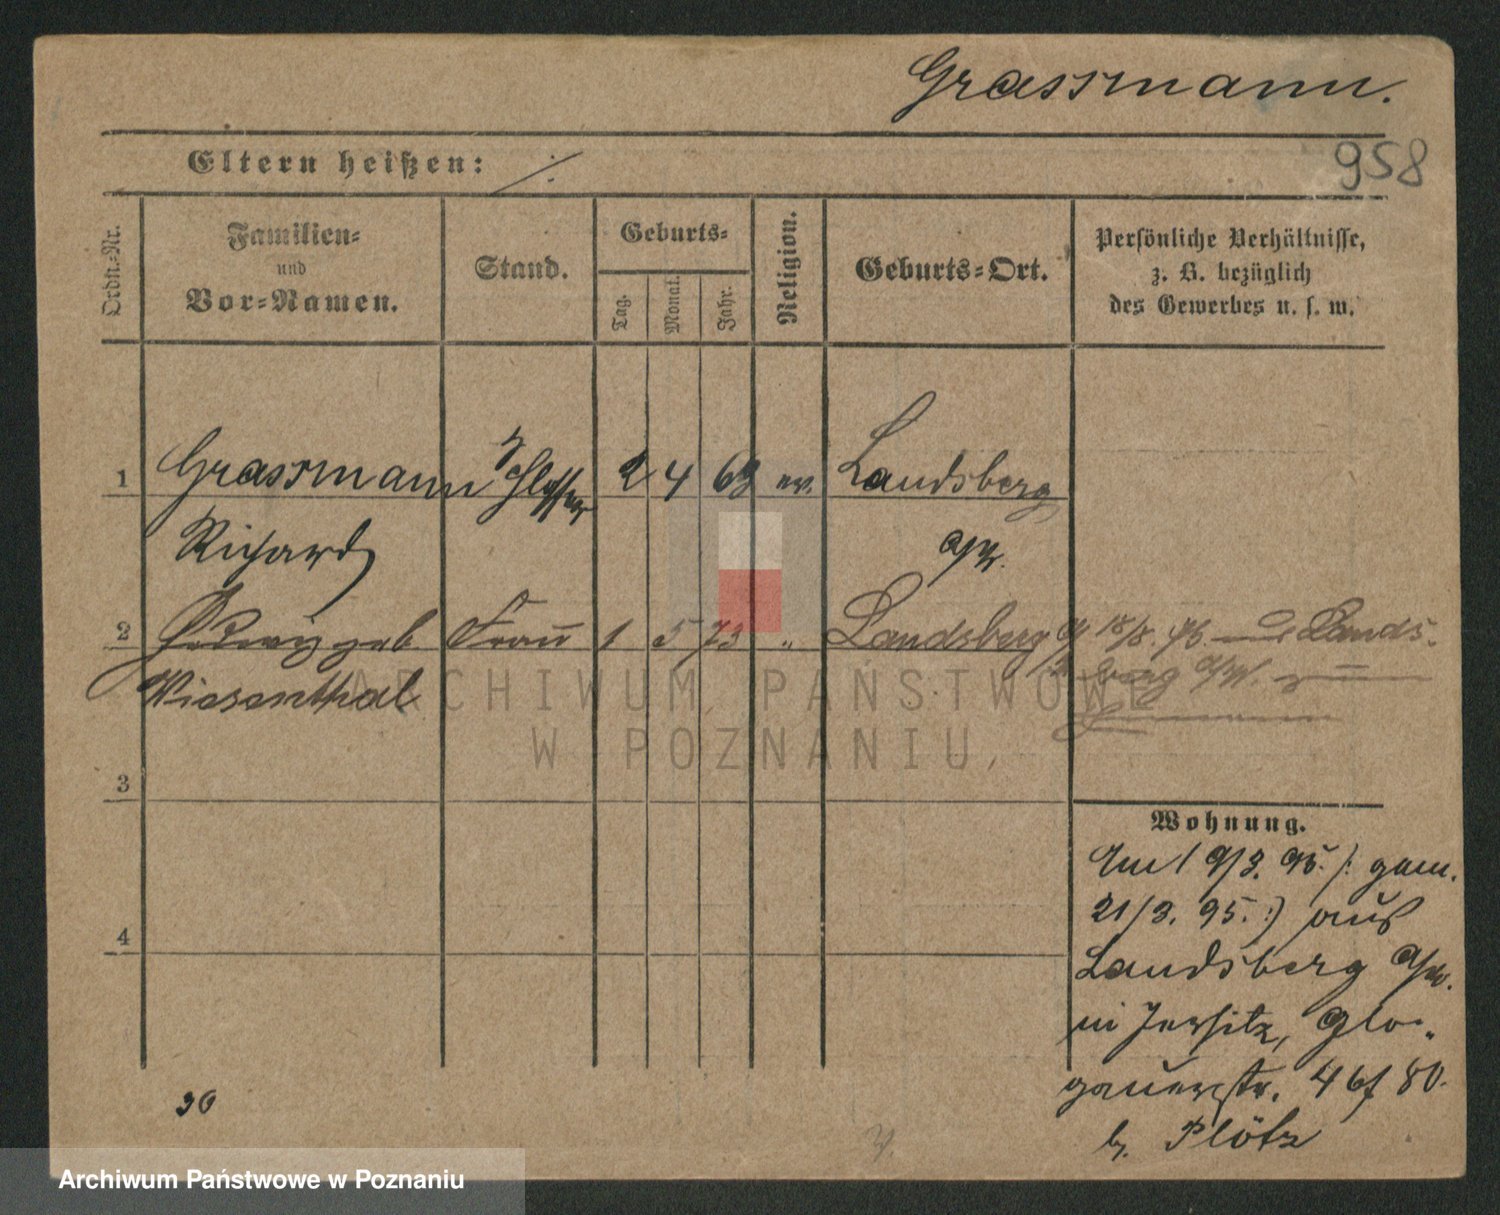 Grassmann.
958
Eltern heißen: ./.
Ordn.-Nr.
Familien-
und
Vor-Namen.
Stand.
Geburts-
Tag.
Monat.
Jahr.
Religion.
Geburts-Ort.
Persönliche Verhältnisse,
z. B. bezüglich
des Gewerbes u. s. w.
1 Grassmann Schlosser 2 4 63 ev. Landsberg
Richard a/W.
2 Hedwig geb Frau 1 5 73 " Landsberg a/W
Wiesenthal
18/8. 96 Lands-
berg a/W.
3
4
Wohnung.
Am 19/3. 95. /: gem.
21/3. 95. :/ aus
Landsberg a/W.
in Jersitz, Glo-
gauerstr. 46 80.
b. Plötz
30
ARCHIWUM PAŃSTWOWE
W POZNANIU
Archiwum Państwowe w Poznaniu